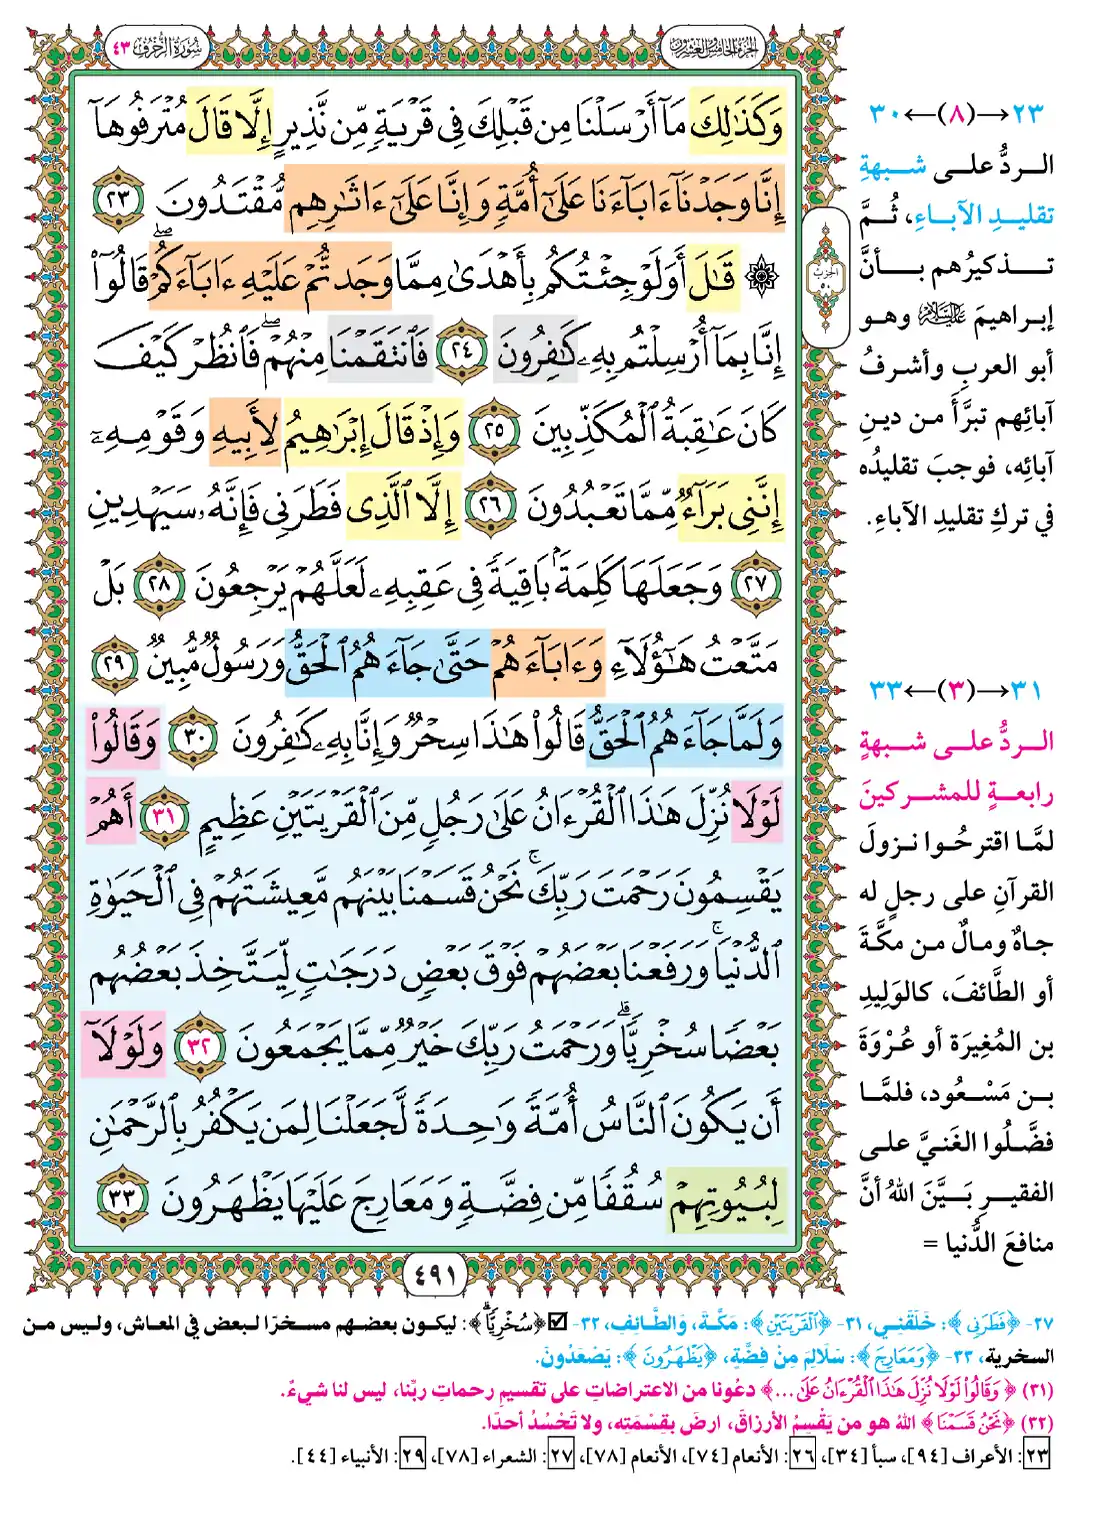 سُورَةُ الزُّخْرُفِ ٤٣
الجزء الخامس والعشرون
وَكَذَٰلِكَ مَآ أَرْسَلْنَا مِن قَبْلِكَ فِى قَرْيَةٍ مِّن نَّذِيرٍ إِلَّا قَالَ مُتْرَفُوهَآ
إِنَّا وَجَدْنَآ ءَابَآءَنَا عَلَىٰٓ أُمَّةٍ وَإِنَّا عَلَىٰٓ ءَاثَٰرِهِم مُّقْتَدُونَ ٢٣
۞ قَٰلَ أَوَلَوْ جِئْتُكُم بِأَهْدَىٰ مِمَّا وَجَدتُّمْ عَلَيْهِ ءَابَآءَكُمْ ۖ قَالُوٓا۟
إِنَّا بِمَآ أُرْسِلْتُم بِهِۦ كَٰفِرُونَ ٢٤ فَٱنتَقَمْنَا مِنْهُمْ ۖ فَٱنظُرْ كَيْفَ
كَانَ عَٰقِبَةُ ٱلْمُكَذِّبِينَ ٢٥ وَإِذْ قَالَ إِبْرَٰهِيمُ لِأَبِيهِ وَقَوْمِهِۦٓ
إِنَّنِى بَرَآءٌ مِّمَّا تَعْبُدُونَ ٢٦ إِلَّا ٱلَّذِى فَطَرَنِى فَإِنَّهُۥ سَيَهْدِينِ
٢٧ وَجَعَلَهَا كَلِمَةًۢ بَاقِيَةً فِى عَقِبِهِۦ لَعَلَّهُمْ يَرْجِعُونَ ٢٨ بَلْ
مَتَّعْتُ هَٰٓؤُلَآءِ وَءَابَآءَهُمْ حَتَّىٰ جَآءَهُمُ ٱلْحَقُّ وَرَسُولٌ مُّبِينٌ ٢٩
وَلَمَّا جَآءَهُمُ ٱلْحَقُّ قَالُوا۟ هَٰذَا سِحْرٌ وَإِنَّا بِهِۦ كَٰفِرُونَ ٣٠ وَقَالُوا۟
لَوْلَا نُزِّلَ هَٰذَا ٱلْقُرْءَانُ عَلَىٰ رَجُلٍ مِّنَ ٱلْقَرْيَتَيْنِ عَظِيمٍ ٣١ أَهُمْ
يَقْسِمُونَ رَحْمَتَ رَبِّكَ ۚ نَحْنُ قَسَمْنَا بَيْنَهُم مَّعِيشَتَهُمْ فِى ٱلْحَيَوٰةِ
ٱلدُّنْيَا ۚ وَرَفَعْنَا بَعْضَهُمْ فَوْقَ بَعْضٍ دَرَجَٰتٍ لِّيَتَّخِذَ بَعْضُهُم
بَعْضًا سُخْرِيًّا ۗ وَرَحْمَتُ رَبِّكَ خَيْرٌ مِّمَّا يَجْمَعُونَ ٣٢ وَلَوْلَآ
أَن يَكُونَ ٱلنَّاسُ أُمَّةً وَٰحِدَةً لَّجَعَلْنَا لِمَن يَكْفُرُ بِٱلرَّحْمَٰنِ
لِبُيُوتِهِمْ سُقُفًا مِّن فِضَّةٍ وَمَعَارِجَ عَلَيْهَا يَظْهَرُونَ ٣٣
٤٩١
الحزب
٥٠
٢٣→(٨)←٣٠
الـردُّ علـى شبهةِ
تقليـدِ الآبـاءِ، ثُـمَّ
تـذكيرُهم بـأنَّ
إبـراهيمَ عليه السلام وهـو
أبو العربِ وأشرفُ
آبائِهم تبرَّأَ مـن دينِ
آبائِه، فوجبَ تقليدُه
في تركِ تقليدِ الآباءِ.
٣١→(٣)←٣٣
الـردُّ علـى شبهةٍ
رابعـةٍ للمشـركينَ
لمَّـا اقترحُـوا نـزولَ
القرآنِ على رجلٍ له
جـاهٌ ومـالٌ مـن مكَّـةَ
أو الطَّائفَ، كالوَليدِ
بن المُغِيرَة أو عُـرْوَةَ
بـن مَسْـعُود، فلمَّـا
فضَّلُوا الغَنيَّ علـى
الفقيـرِ بَـيَّنَ اللهُ أنَّ
منافعَ الدُّنيا =
٢٧- ﴿فَطَرَنِى﴾: خَلَقَنِـي، ٣١- ﴿ٱلْقَرْيَتَيْنِ﴾: مَكَّـةَ، وَالطَّـائِفِ، ٣٢- ☑﴿سُخْرِيًّا ۗ﴾: ليكـون بعضـهم مسـخرًا لـبعض في المعاش، ولـيس مـن
السخرية، ٣٣- ﴿وَمَعَارِجَ﴾: سَلَالِمَ مِنْ فِضَّةٍ، ﴿يَظْهَرُونَ﴾: يَصْعَدُونَ.
(٣١) ﴿وَقَالُوا۟ لَوْلَا نُزِّلَ هَٰذَا ٱلْقُرْءَانُ عَلَىٰ...﴾ دعُونا من الاعتراضاتِ على تقسيمِ رحماتِ ربِّنا، ليس لنا شيءٌ.
(٣٢) ﴿نَحْنُ قَسَمْنَا﴾ اللهُ هو من يَقْسِمُ الأرزاقَ، ارضَ بقِسْمَتِه، ولا تَحْسُدْ أحدًا.
٢٣: الأعراف [٩٤]، سبأ [٣٤]، ٢٦: الأنعام [٧٤]، الأنعام [٧٨]، ٢٧: الشعراء [٧٨]، ٢٩: الأنبياء [٤٤].